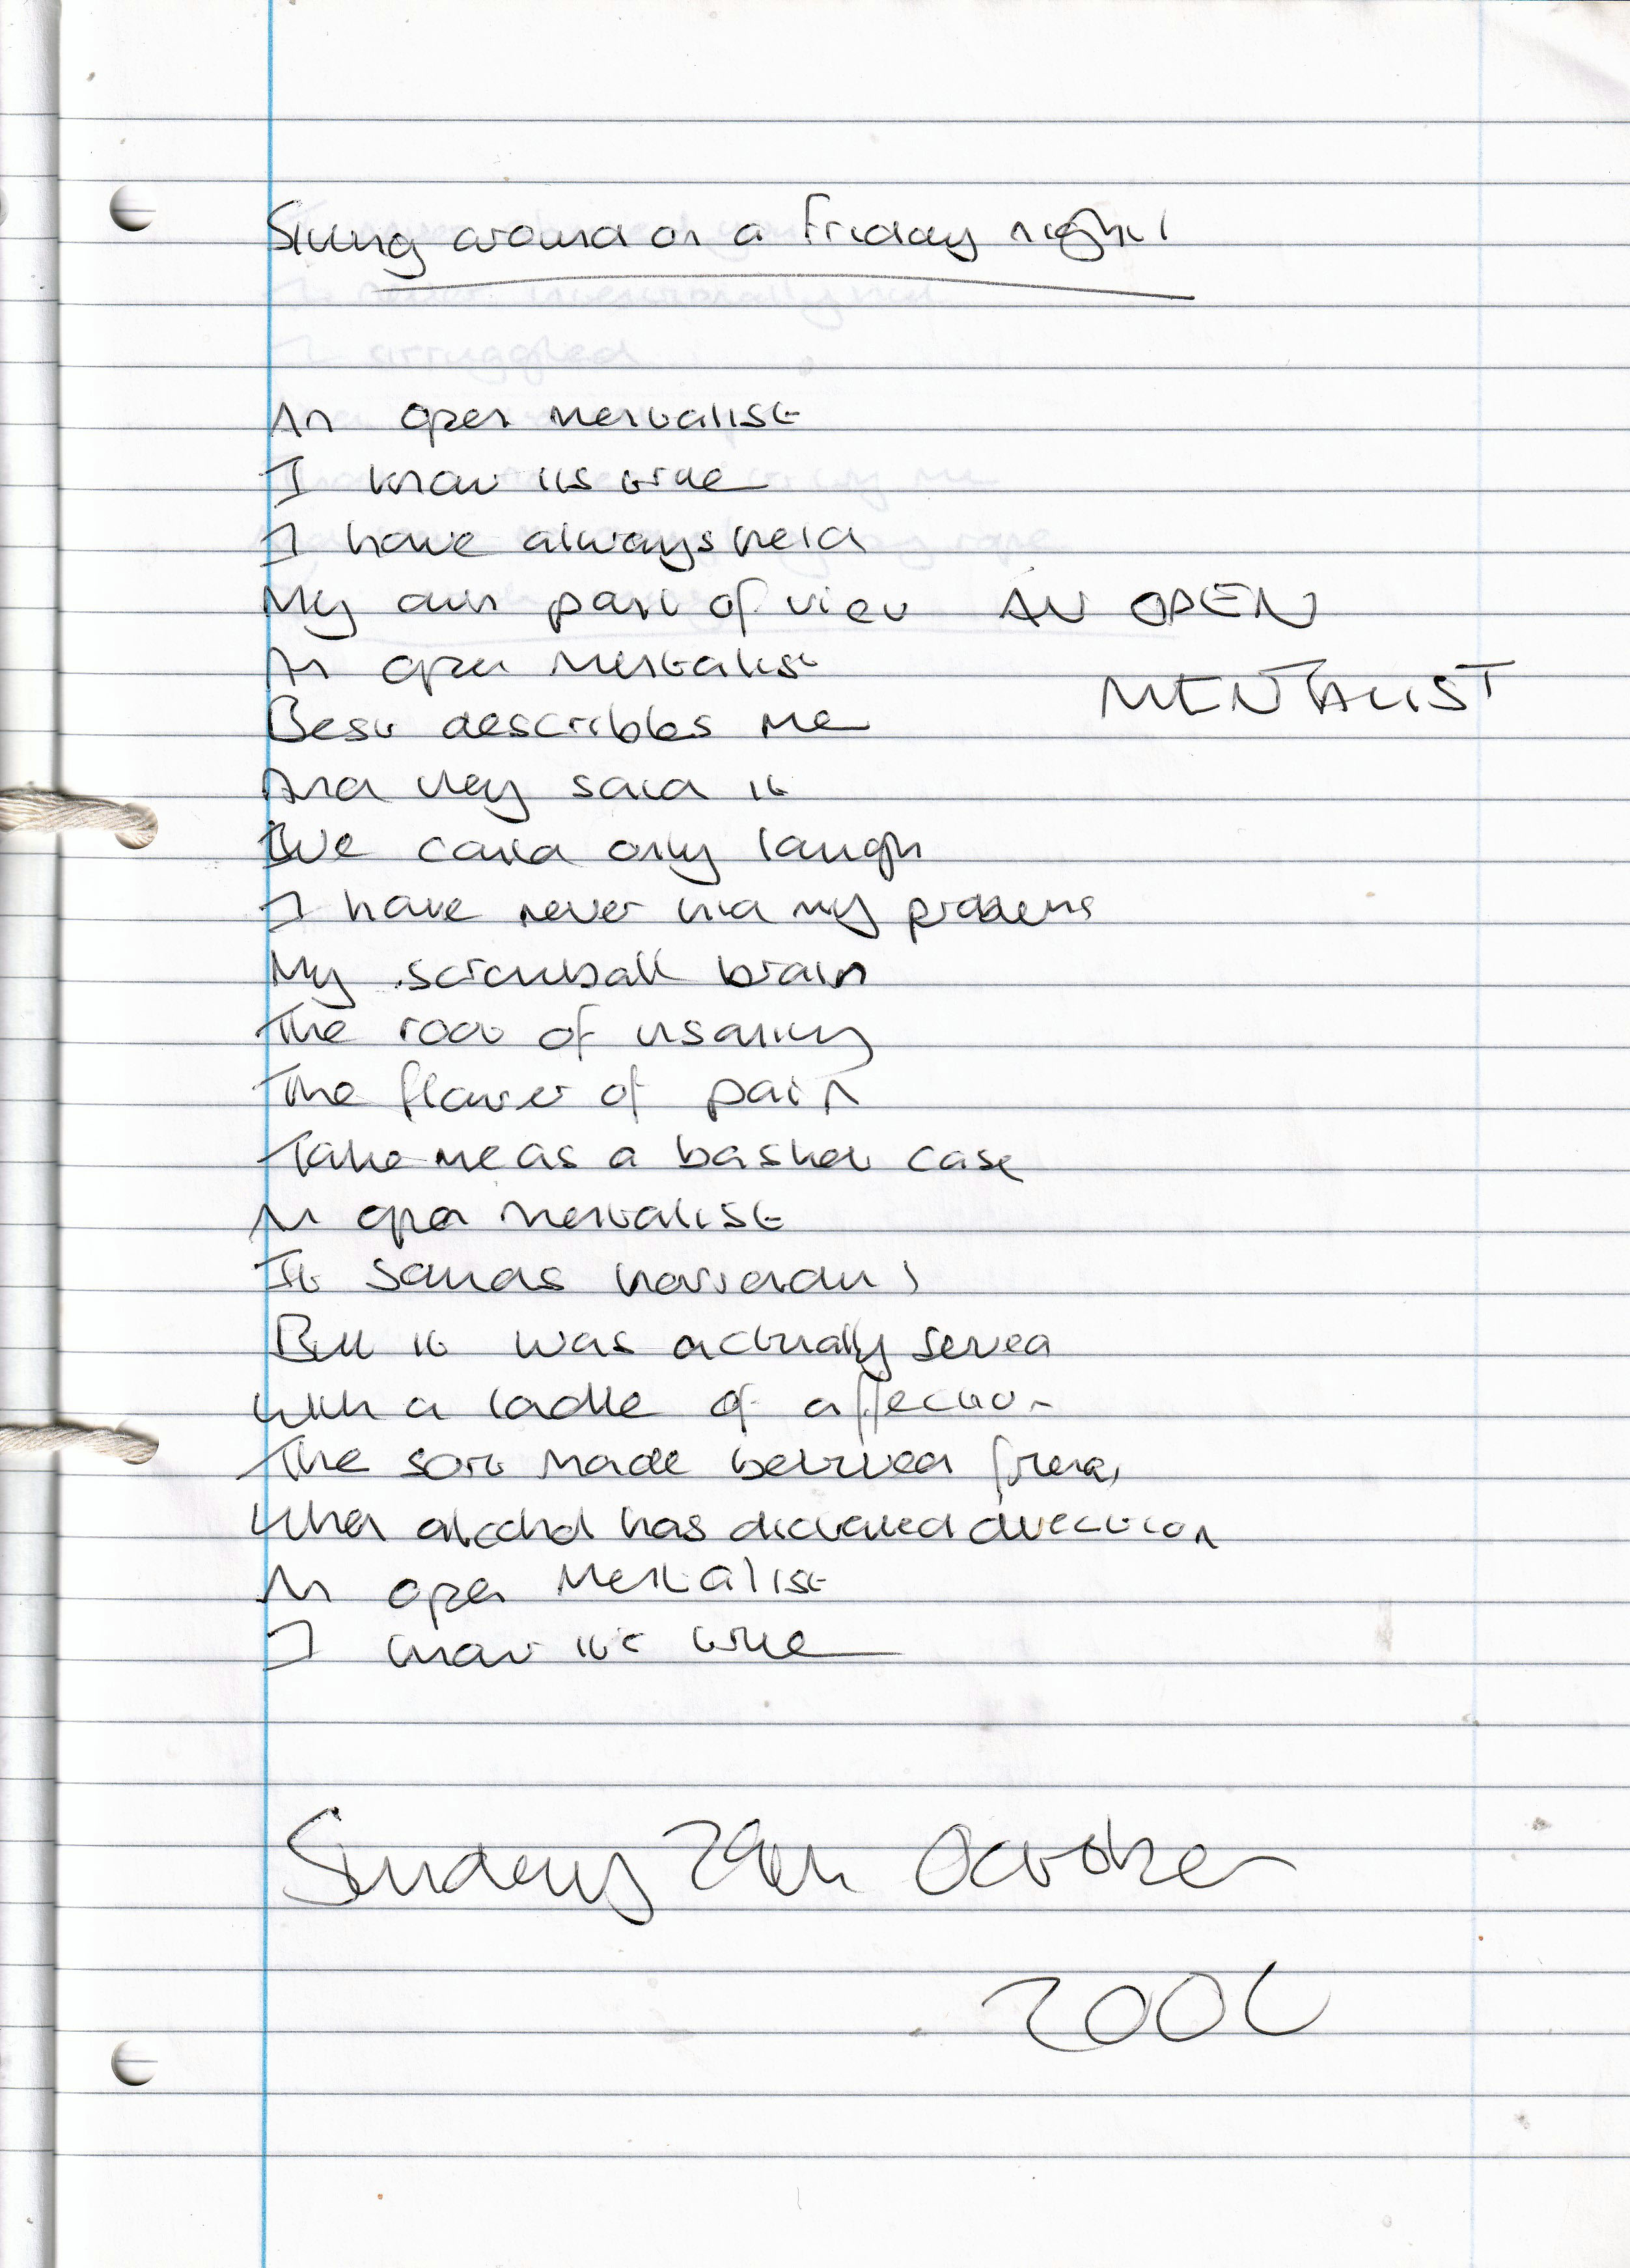 Sitting around on a Friday night
An open mentalist
I know its true
I have always held
My own point of view
AN OPEN
MENTALIST
An open mentalist
Best describles me
And they said it
I've could only laugh
I have never hid my problems
My screwball brain
The root of insanity
The flower of pain
Take me as a basket case
An open mentalist
It sounds
But it was actually served
With a ladle of affection
The sort made between friends
When alcohol has dictated direction
An open mentalist
I know its true
Sunday 29th October
2006